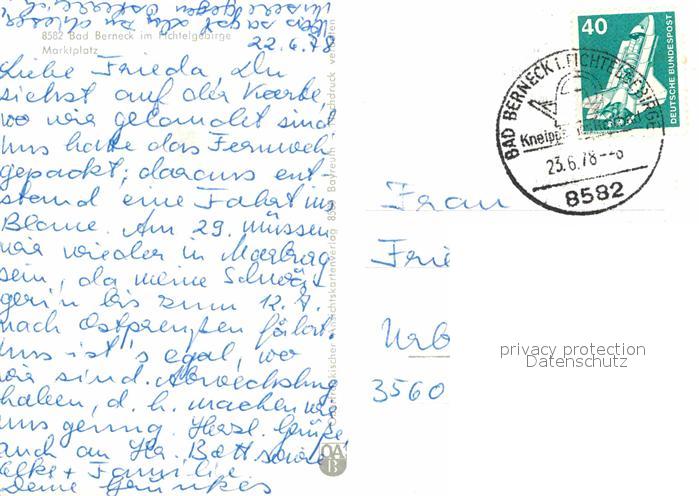 8582 Bad Berneck im Fichtelgebirge
Marktplatz
22.6.78
Liebe Frieda, Du
siehst auf der Karte,
wo wir gelandet sind
Uns hatte das Fernweh
gepackt; daraus ent-
stand eine Fahrt ins
Blaue. Am 29. müssen
wir wieder in Marburg
sein, da meine Schwä-
gerin bis zum 12.7.
nach Ostpreußen fährt.
Uns ist's egal, wo
wir sind. Abwechslung
haben, d.h. machen wir
uns genug. Herzl. Grüße
auch an Hr. Bott sowie
Elke + Familie
Deine
Ansichtskartenverlag Bayreuth
OAB
40
DEUTSCHE BUNDESPOST
BAD BERNECK I. FICHTELGEBIRGE
Kneipp
23.6.78--8
8582
Frau
Frie
3560
privacy protection
Datenschutz